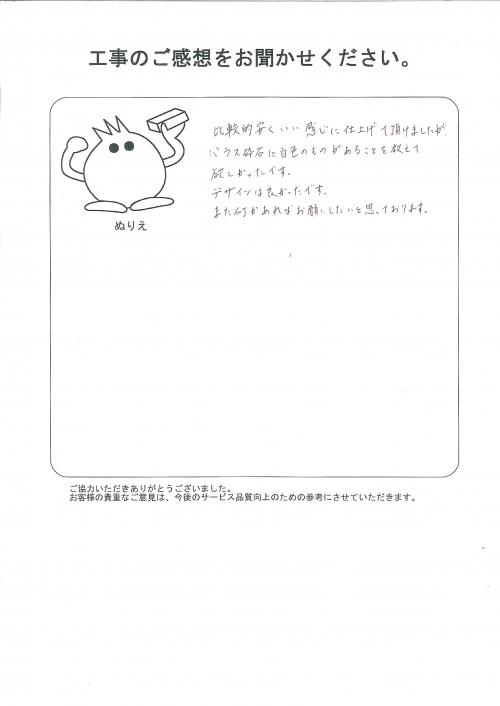 工事のご感想をお聞かせください。
比較的安くいい感じに仕上げて頂けましたが
バラス砕石に白色のものがあることを教えて
欲しかったです。
デザインは良かったです。
また何かあればお願いしたいと思っております。
ぬりえ
ご協力いただきありがとうございました。
お客様の貴重なご意見は、今後のサービス品質向上のための参考にさせていただきます。